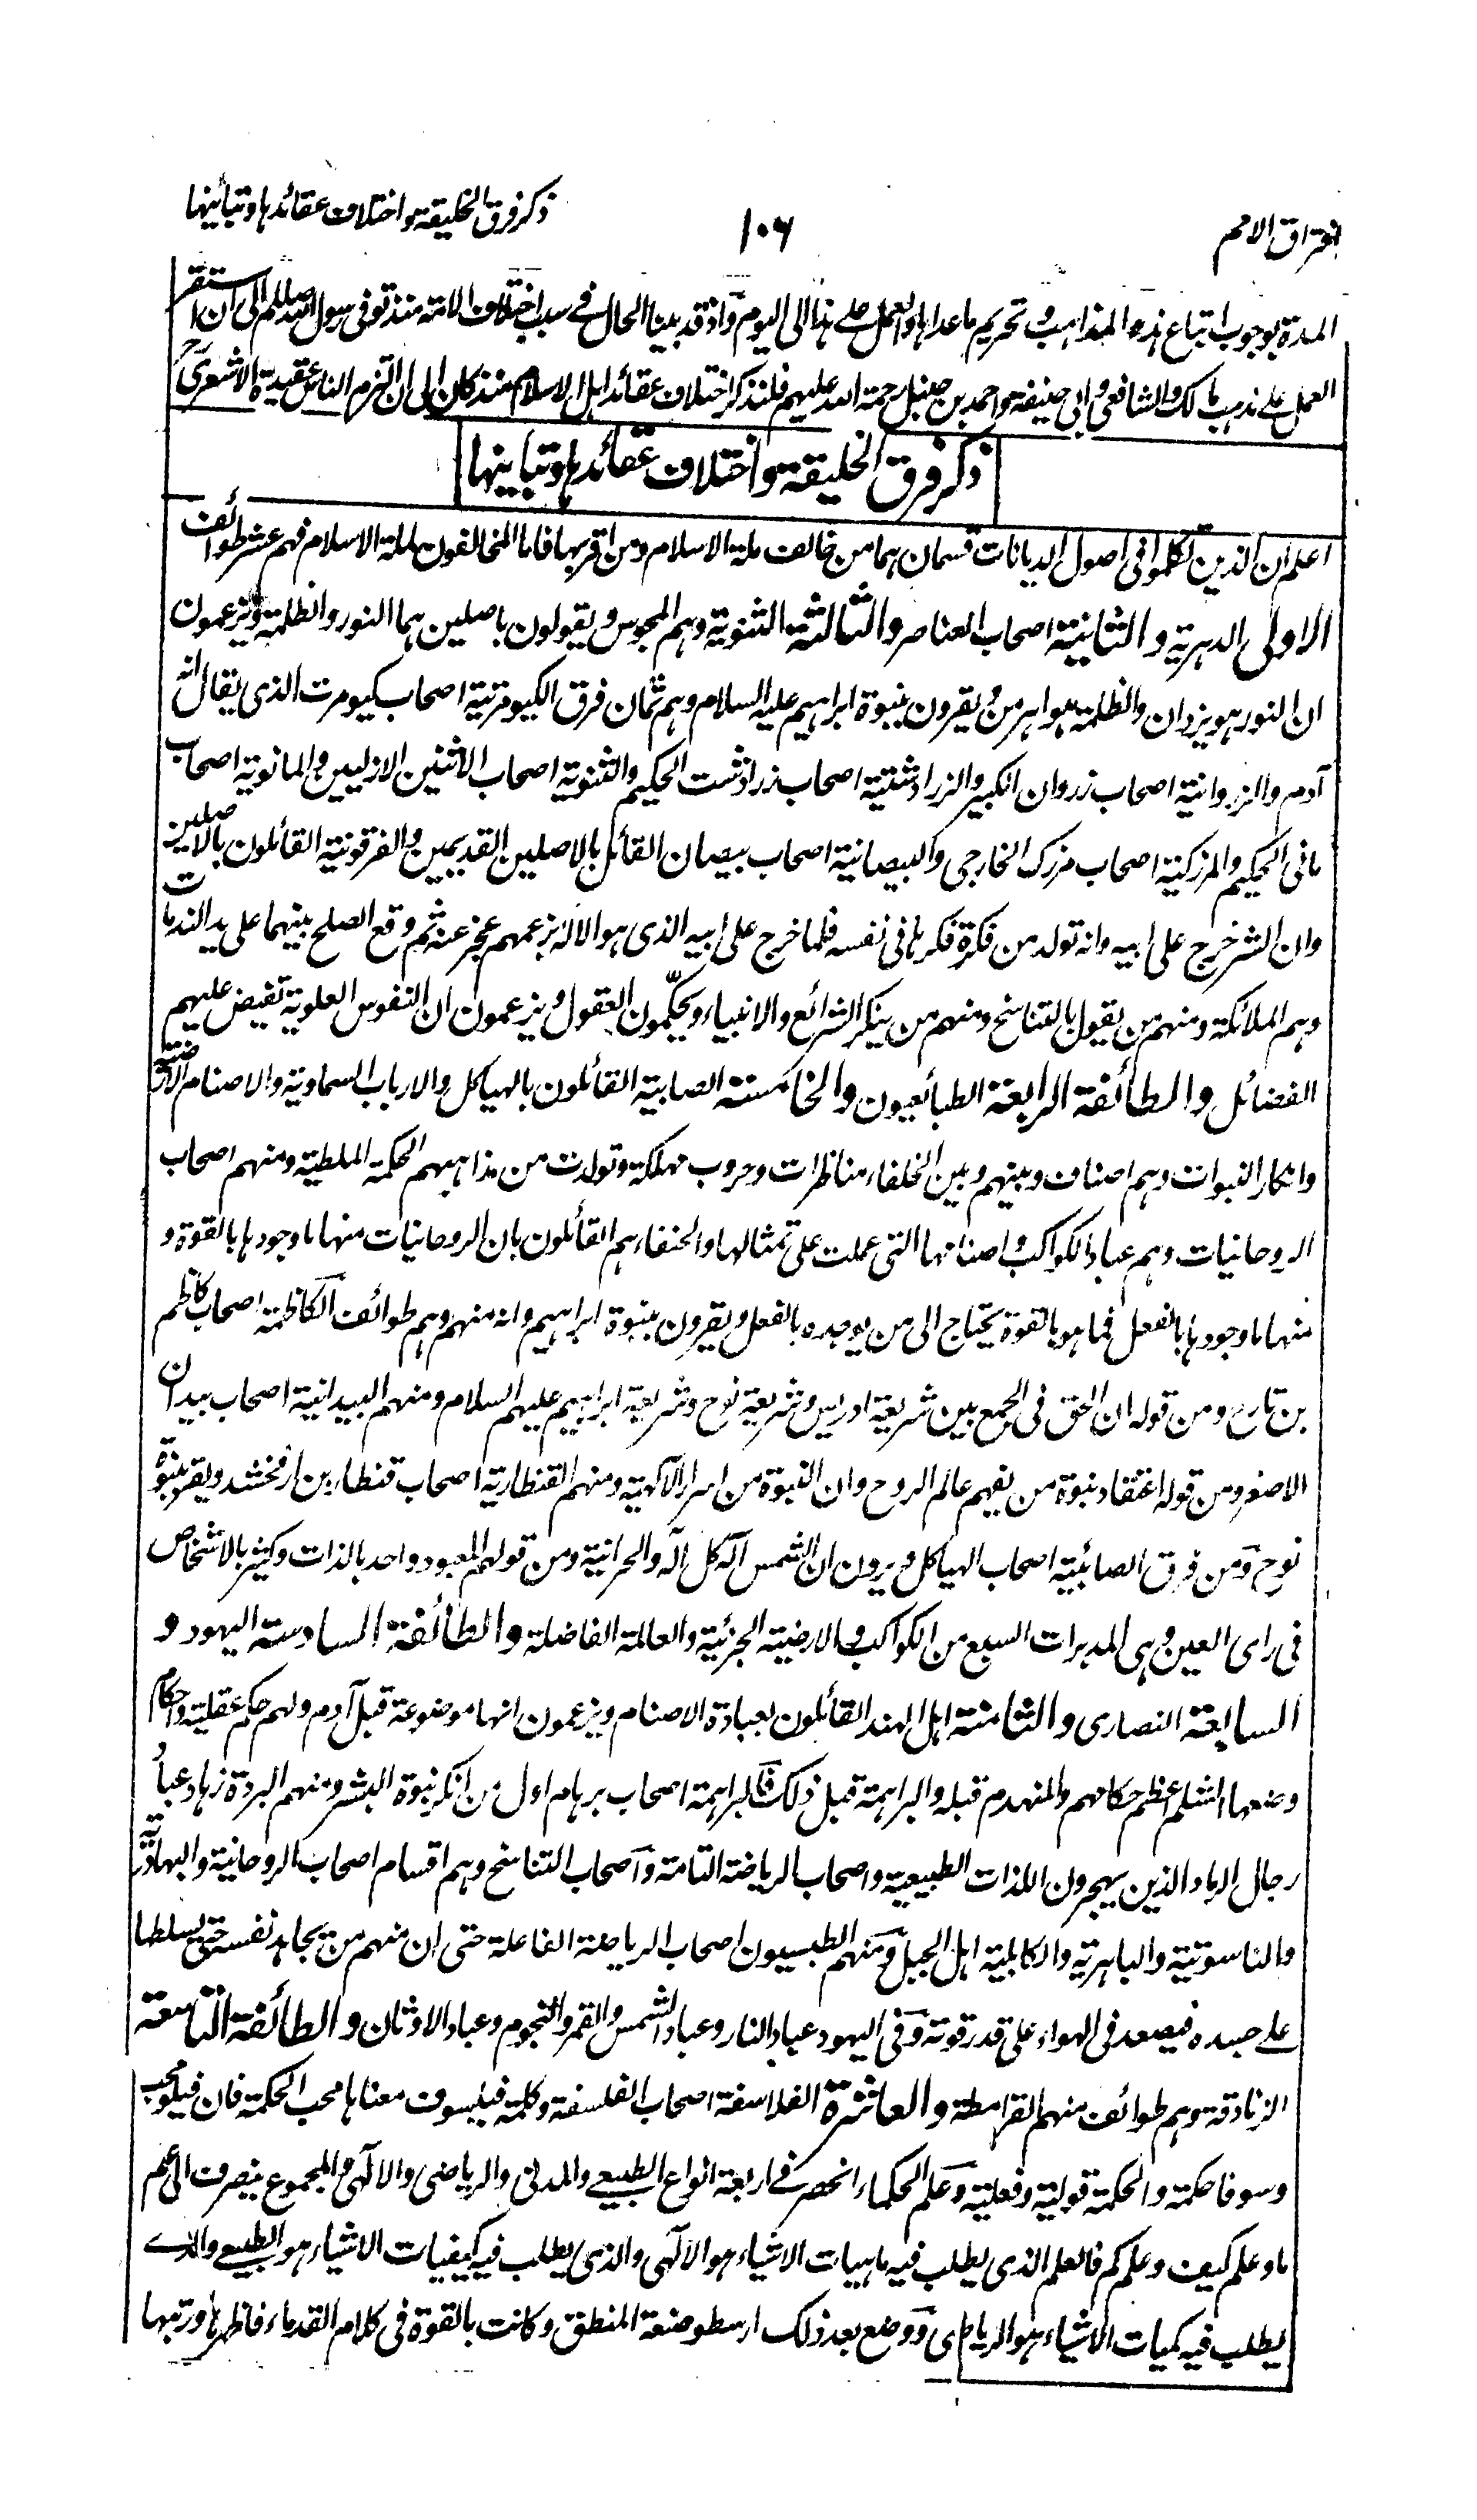 افتراق الامم
١٠٦
ذكر فرق الخليقة واختلاف عقائدها وتباينها
المدة بوجوب اتباع هذه المذاهب وتحريم ماعداها والعمل على هذا الى اليوم واذ قد بينا الحال في سبب اختلاف الامة منذ توفى رسول الله صللم الى ان استقر
العمل على مذهب مالك والشافعى وابى حنيفة واحمد بن حنبل رحمة الله عليهم فلنذكر اختلاف عقائد اهل الاسلام منذ كان الى ان التزم الناس عقيدة الاشعرى رح
ذكر فرق الخليقة واختلاف عقائدها وتباينها
اعلم ان الذين تكلموا فى اصول الديانات قسمان هما من خالف ملة الاسلام ومن اقر بها فاما المخالفون لملة الاسلام فهم عشر طوائف
الاولى الدهرية والثانية اصحاب العناصر والثالثة الثنوية وهم المجوس ويقولون باصلين هما النور والظلمة ويزعمون
ان النور هو يزدان والظلمة هو اهرمن ويقرون بنبوة ابراهيم عليه السلام وهم ثمان فرق الكيومرتية اصحاب كيومرت الذى يقال انه
آدم والزروانية اصحاب زروان الكبير والزرادشتية اصحاب زرادشت الحكيم والثنوية اصحاب الاثنين الازليين والمانوية اصحاب
مانى الحكيم والمزدكية اصحاب مزدك الخارجى والبيصانية اصحاب بيصان القائل بالاصلين القديمين والفرقونية القائلون بالاصلين
وان الشر خرج على ابيه وانه تولد من فكرة فكرها فى نفسه فلما خرج على ابيه الذى هو الاله بزعمهم عجز عنه ثم وقع الصلح بينهما على يد الندمات
وهم الملائكة ومنهم من يقول بالتناسخ ومنهم من ينكر الشرائع والانبياء ويحكّمون العقول ويزعمون ان النفوس العلوية تفيض عليهم
الفضائل والطائفة الرابعة الطبائعيون والخامسة الصابية القائلون بالهياكل والارباب السماوية والاصنام الارضية
وانكار النبوات وهم اصناف وبينهم وبين الخلفاء مناظرات وحروب مهلكة وتولدت من مذاهبهم الحكمة الملطية ومنهم اصحاب
الروحانيات وهم عباد الكواكب واصنامها التى عملت على تمثالها والحنفاء هم القائلون بان الروحانيات منها ما وجودها بالقوة و
منها ما وجودها بالفعل فما هو بالقوة يحتاج الى من يوجده بالفعل ويقرون بنبوة ابراهيم وانه منهم وهم طوائف الكاظمة اصحاب كاظم
بن تارح ومن قوله ان الحق فى الجمع بين شريعة ادريس وشريعة نوح وشريعة ابراهيم عليهم السلام ومنهم البيدانية اصحاب بيدان
الاصغر ومن قوله اعتقاد نبوة من يفهم عالم الروح وان النبوة من اسرار الآلهية ومنهم القنطارية اصحاب قنطار بن ارفخشد ويقر بنبوة
نوح ومن فرق الصائبية اصحاب الهياكل ويرون ان الشمس اله كل اله والحرانية ومن قولهم المعبود واحد بالذات وكثير بالاشخاص
فى راى العين وهى المدبرات السبع من الكواكب والارضية الجزئية والعالمة الفاضلة والطائفة السادسة اليهود و
السابعة النصارى والثامنة اهل الهند القائلون بعبادة الاصنام ويزعمون انها موضوعة قبل آدم ولهم حكم عقلية واحكام
وضعها الشلم اعظم حكامهم والمنهدم قبله والبراهمة قبل ذلك فالبراهمة اصحاب برهام اول من انكر نبوة البشر ومنهم البردة زهاد عبا
رجال الرماد الذين يهجرون اللذات الطبيعية واصحاب الرياضة التامة واصحاب التناسخ وهم اقسام اصحاب الروحانية والبهادرية
والناسوتية والباهرية والكابلية اهل الجبل ومنهم الطبسيون اصحاب الرياضة الفاعلة حتى ان منهم من يجاهد نفسه حتى يسلطها
على جسده فيصعد فى الهواء على قدر قوته وفى اليهود عباد النار وعباد الشمس والقمر والنجوم وعباد الاوثان والطائفة التاسعة
الزنادقة وهم طوائف منهم القرامطة والعاشرة الفلاسفة اصحاب الفلسفة وكلمة فيلسوف معناها محب الحكمة فان فيلو محب
وسوفا حكمة والحكمة قولية وفعلية وعلم الحكماء انحصر في اربعة انواع الطبيعي والمدنى والرياضى والالهى والمجموع ينصرف الى علم
ما وعلم كيف وعلم كم فالعلم الذى يطلب فيه ماهيات الاشياء هو الالهى والذى يطلب فيه كيفيات الاشياء هو الطبيعي والذي
يطلب فيه كميات الاشياء هو الرياضى ووضع بعد ذلك ارسطو صنعة المنطق وكانت بالقوة فى كلام القدماء فاظهرها ورتبها